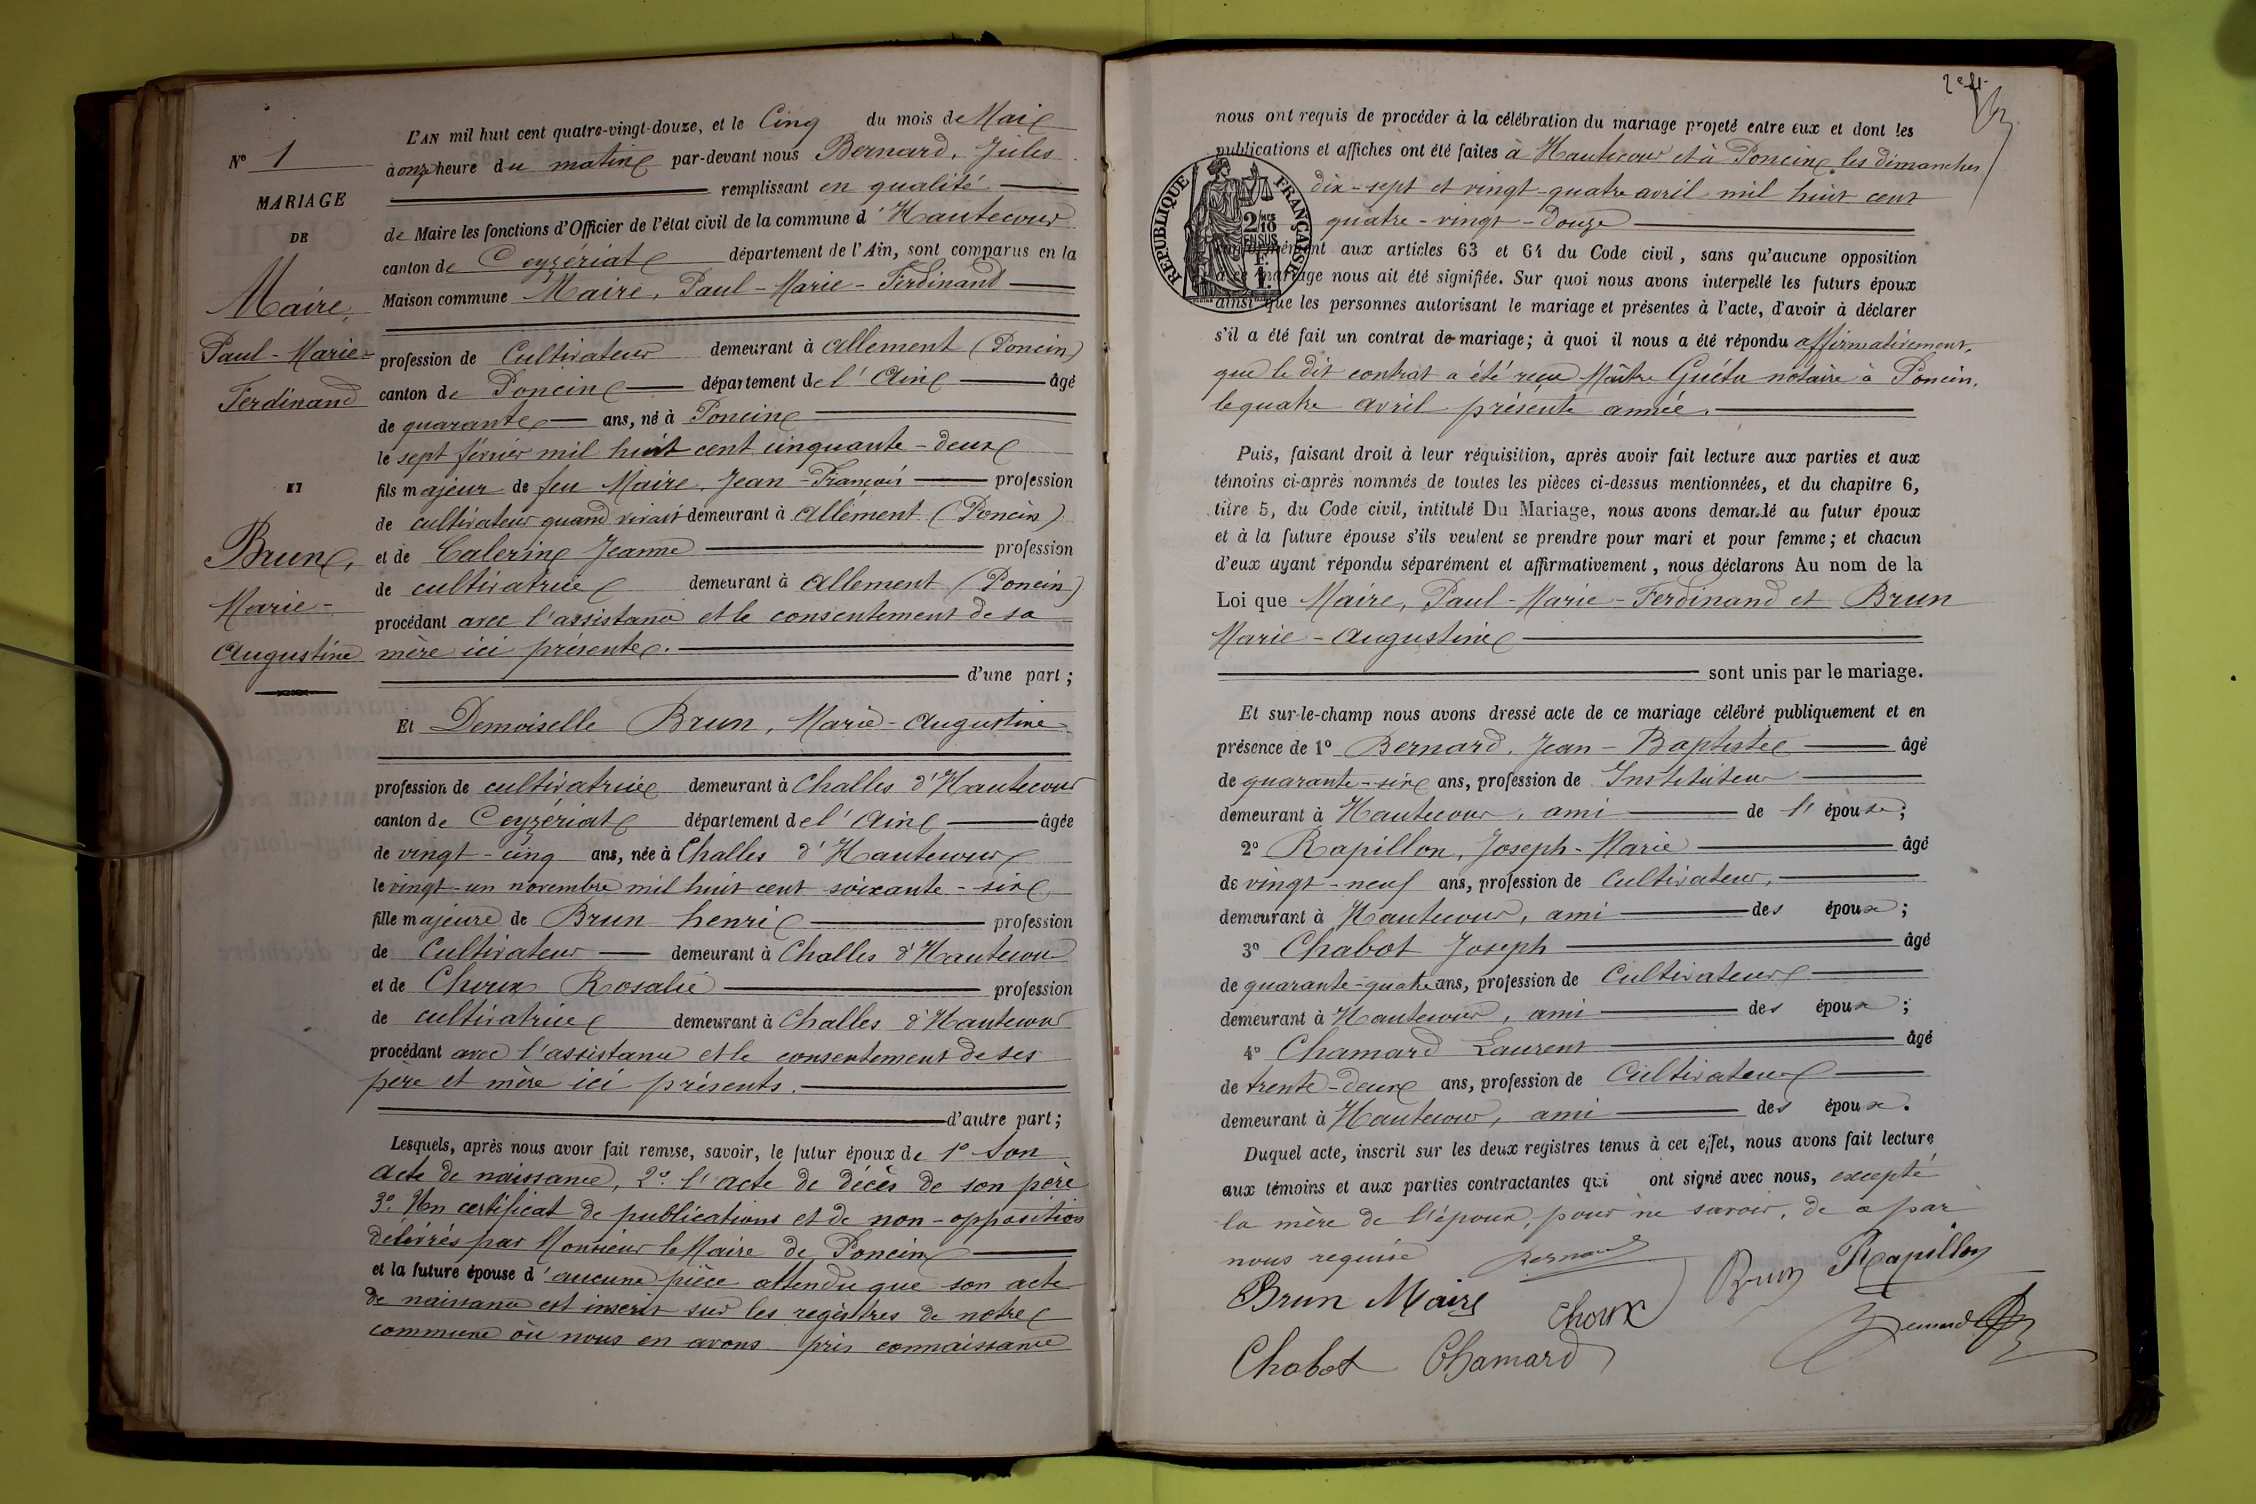 N° 1
MARIAGE
DE
Maire,
Paul-Marie-
Ferdinand
ET
Brun,
Marie-
Augustine
L'AN mil huit cent quatre-vingt-douze, et le Cinq du mois de Mai
à onze heure du matin par-devant nous Bernard, Jules
remplissant en qualité
de Maire les fonctions d'Officier de l'état civil de la commune d'Hautecour
canton de Ceyzériat département de l'Ain, sont comparus en la
Maison commune Maire, Paul-Marie-Ferdinand
profession de Cultivateur demeurant à Allement (Poncin)
canton de Poncin département de l'Ain âgé
de quarante ans, né à Poncin
le sept février mil huit cent cinquante-deux
fils majeur de feu Maire, Jean-François profession
de cultivateur quand vivait demeurant à Allement (Poncin)
et de Calerin Jeanne profession
de cultivatrice demeurant à Allement (Poncin)
procédant avec l'assistance et le consentement de sa
mère ici présente.
d'une part ;
Et Demoiselle Brun, Marie-Augustine
profession de cultivatrice demeurant à Challes d'Hautecour
canton de Ceyzériat département de l'Ain âgée
de vingt-cinq ans, née à Challes d'Hautecour
le vingt-un novembre mil huit cent soixante-six
fille majeure de Brun henri profession
de Cultivateur demeurant à Challes d'Hautecour
et de Choux Rosalie profession
de cultivatrice demeurant à Challes d'Hautecour
procédant avec l'assistance et le consentement de ses
père et mère ici présents.
d'autre part ;
Lesquels, après nous avoir fait remise, savoir, le futur époux de 1° Son
acte de naissance, 2° l'acte de décès de son père
3° Un certificat de publications et de non-opposition
délivrés par Monsieur le Maire de Poncin
et la future épouse d'aucune pièce attendu que son acte
de naissance est inscrit sur les registres de notre
commune où nous en avons pris connaissance
2e f.
nous ont requis de procéder à la célébration du mariage projeté entre eux et dont les
publications et affiches ont été faites à Hautecour et à Poncin les dimanches
dix-sept et vingt-quatre avril mil huit cent
quatre-vingt-douze
RÉPUBLIQUE FRANÇAISE
2/10
EN SUS
conformément aux articles 63 et 64 du Code civil, sans qu'aucune opposition
à ce mariage nous ait été signifiée. Sur quoi nous avons interpellé les futurs époux
ainsi que les personnes autorisant le mariage et présentes à l'acte, d'avoir à déclarer
s'il a été fait un contrat de mariage; à quoi il nous a été répondu affirmativement,
que le dit contrat a été reçu Maître Guétu notaire à Poncin,
le quatre avril présente année.
Puis, faisant droit à leur réquisition, après avoir fait lecture aux parties et aux
témoins ci-après nommés de toutes les pièces ci-dessus mentionnées, et du chapitre 6,
titre 5, du Code civil, intitulé Du Mariage, nous avons demandé au futur époux
et à la future épouse s'ils veulent se prendre pour mari et pour femme ; et chacun
d'eux ayant répondu séparément et affirmativement, nous déclarons Au nom de la
Loi que Maire, Paul-Marie-Ferdinand et Brun
Marie-Augustine
sont unis par le mariage.
Et sur-le-champ nous avons dressé acte de ce mariage célébré publiquement et en
présence de 1° Bernard, Jean-Baptiste âgé
de quarante-six ans, profession de Instituteur
demeurant à Hautecour, ami de l'épouse ;
2° Rapillon, Joseph-Marie âgé
de vingt-neuf ans, profession de Cultivateur,
demeurant à Hautecour, ami des époux ;
3° Chabot Joseph âgé
de quarante-quatre ans, profession de Cultivateur
demeurant à Hautecour, ami des époux ;
4° Chamard Laurent âgé
de trente-deux ans, profession de Cultivateur
demeurant à Hautecour, ami des époux.
Duquel acte, inscrit sur les deux registres tenus à cet effet, nous avons fait lecture
aux témoins et aux parties contractantes qui ont signé avec nous, excepté
la mère de l'époux, pour ne savoir, de a par
nous requise
Bernard Brun Rapillon
Brun Maire Choux Bernard
Chabot Chamard